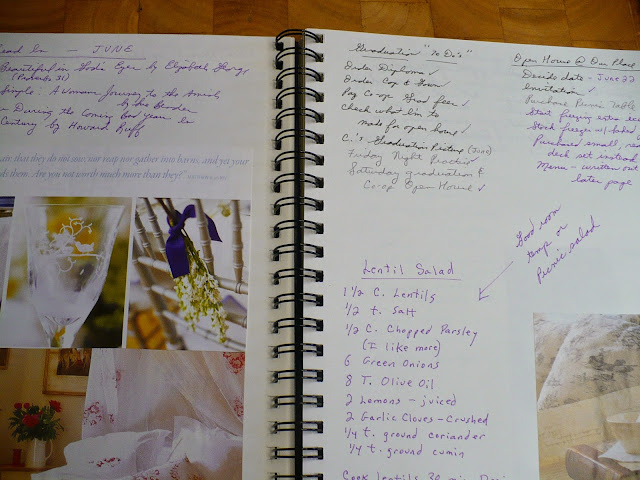 Read In — JUNE
Beautiful in God's Eyes by Elizabeth George
(Proverbs 31)
Simple: A Woman Journey to the Amish
by Sue Bender
During the Coming Bad years In
Century by Howard Ruff
that they do not sow, nor reap nor gather into barns, and yet your
them. Are you not worth much more than they?"
Graduation "To Do's"
Order Diploma ✓
Order Cap & Gown ✓
Pay Co-op Grad fee ✓
check what I'm to
made for open house ✓
C.'s Graduation Picture (June)
Friday Night Practice ✓
Saturday graduation &
Co-op Open House ✓
Open House @ Our Place
Decide date - June 22
Invitation ✓
Purchase Picnic Table
Start freezing extra
Stock freezer w/ baked
Purchase small,
deck set instead
Menu - written out
later page
Good room
temp or
Picnic salad
Lentil Salad
1 1/2 C. Lentils
1/2 t. Salt
1/2 C. Chopped Parsley
(I like more)
6 Green Onions
8 T. Olive Oil
2 Lemons - juiced
2 Garlic Cloves - Crushed
1/4 t. ground coriander
1/4 t. ground cumin
Cook lentils 30 min.